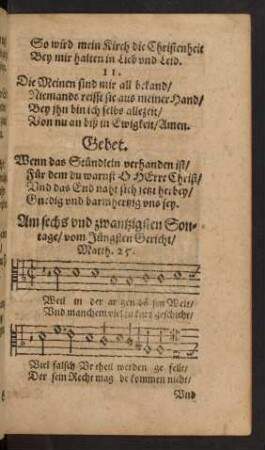 So wird mein Kirch die Christenheit
Bey mir halten in Lieb vnd Leid.
11.
Die Meinen sind mir all bekand/
Niemands reisst sie aus meiner Hand/
Bey jhn bin ich selbs allezeit/
Von nu an biß in Ewigkeit/Amen.
Gebet.
Wenn das Stündlein verhanden ist/
Für dem du warnst O HErr Christ/
Vnd das End naht sich jetzt herbey/
Gnedig vnd barmhertzig vns sey.
Am sechs vnd zwantzigsten Son-
tage/ vom Jüngsten Gericht/
Matth. 25.
Weil in der ar gen bö sen Welt/
Vnd manchem viel zu kurz geschicht/
Viel falsch Vrtheil werden ge fellt/
Der sein Recht mag be kommen nicht/
Vnd